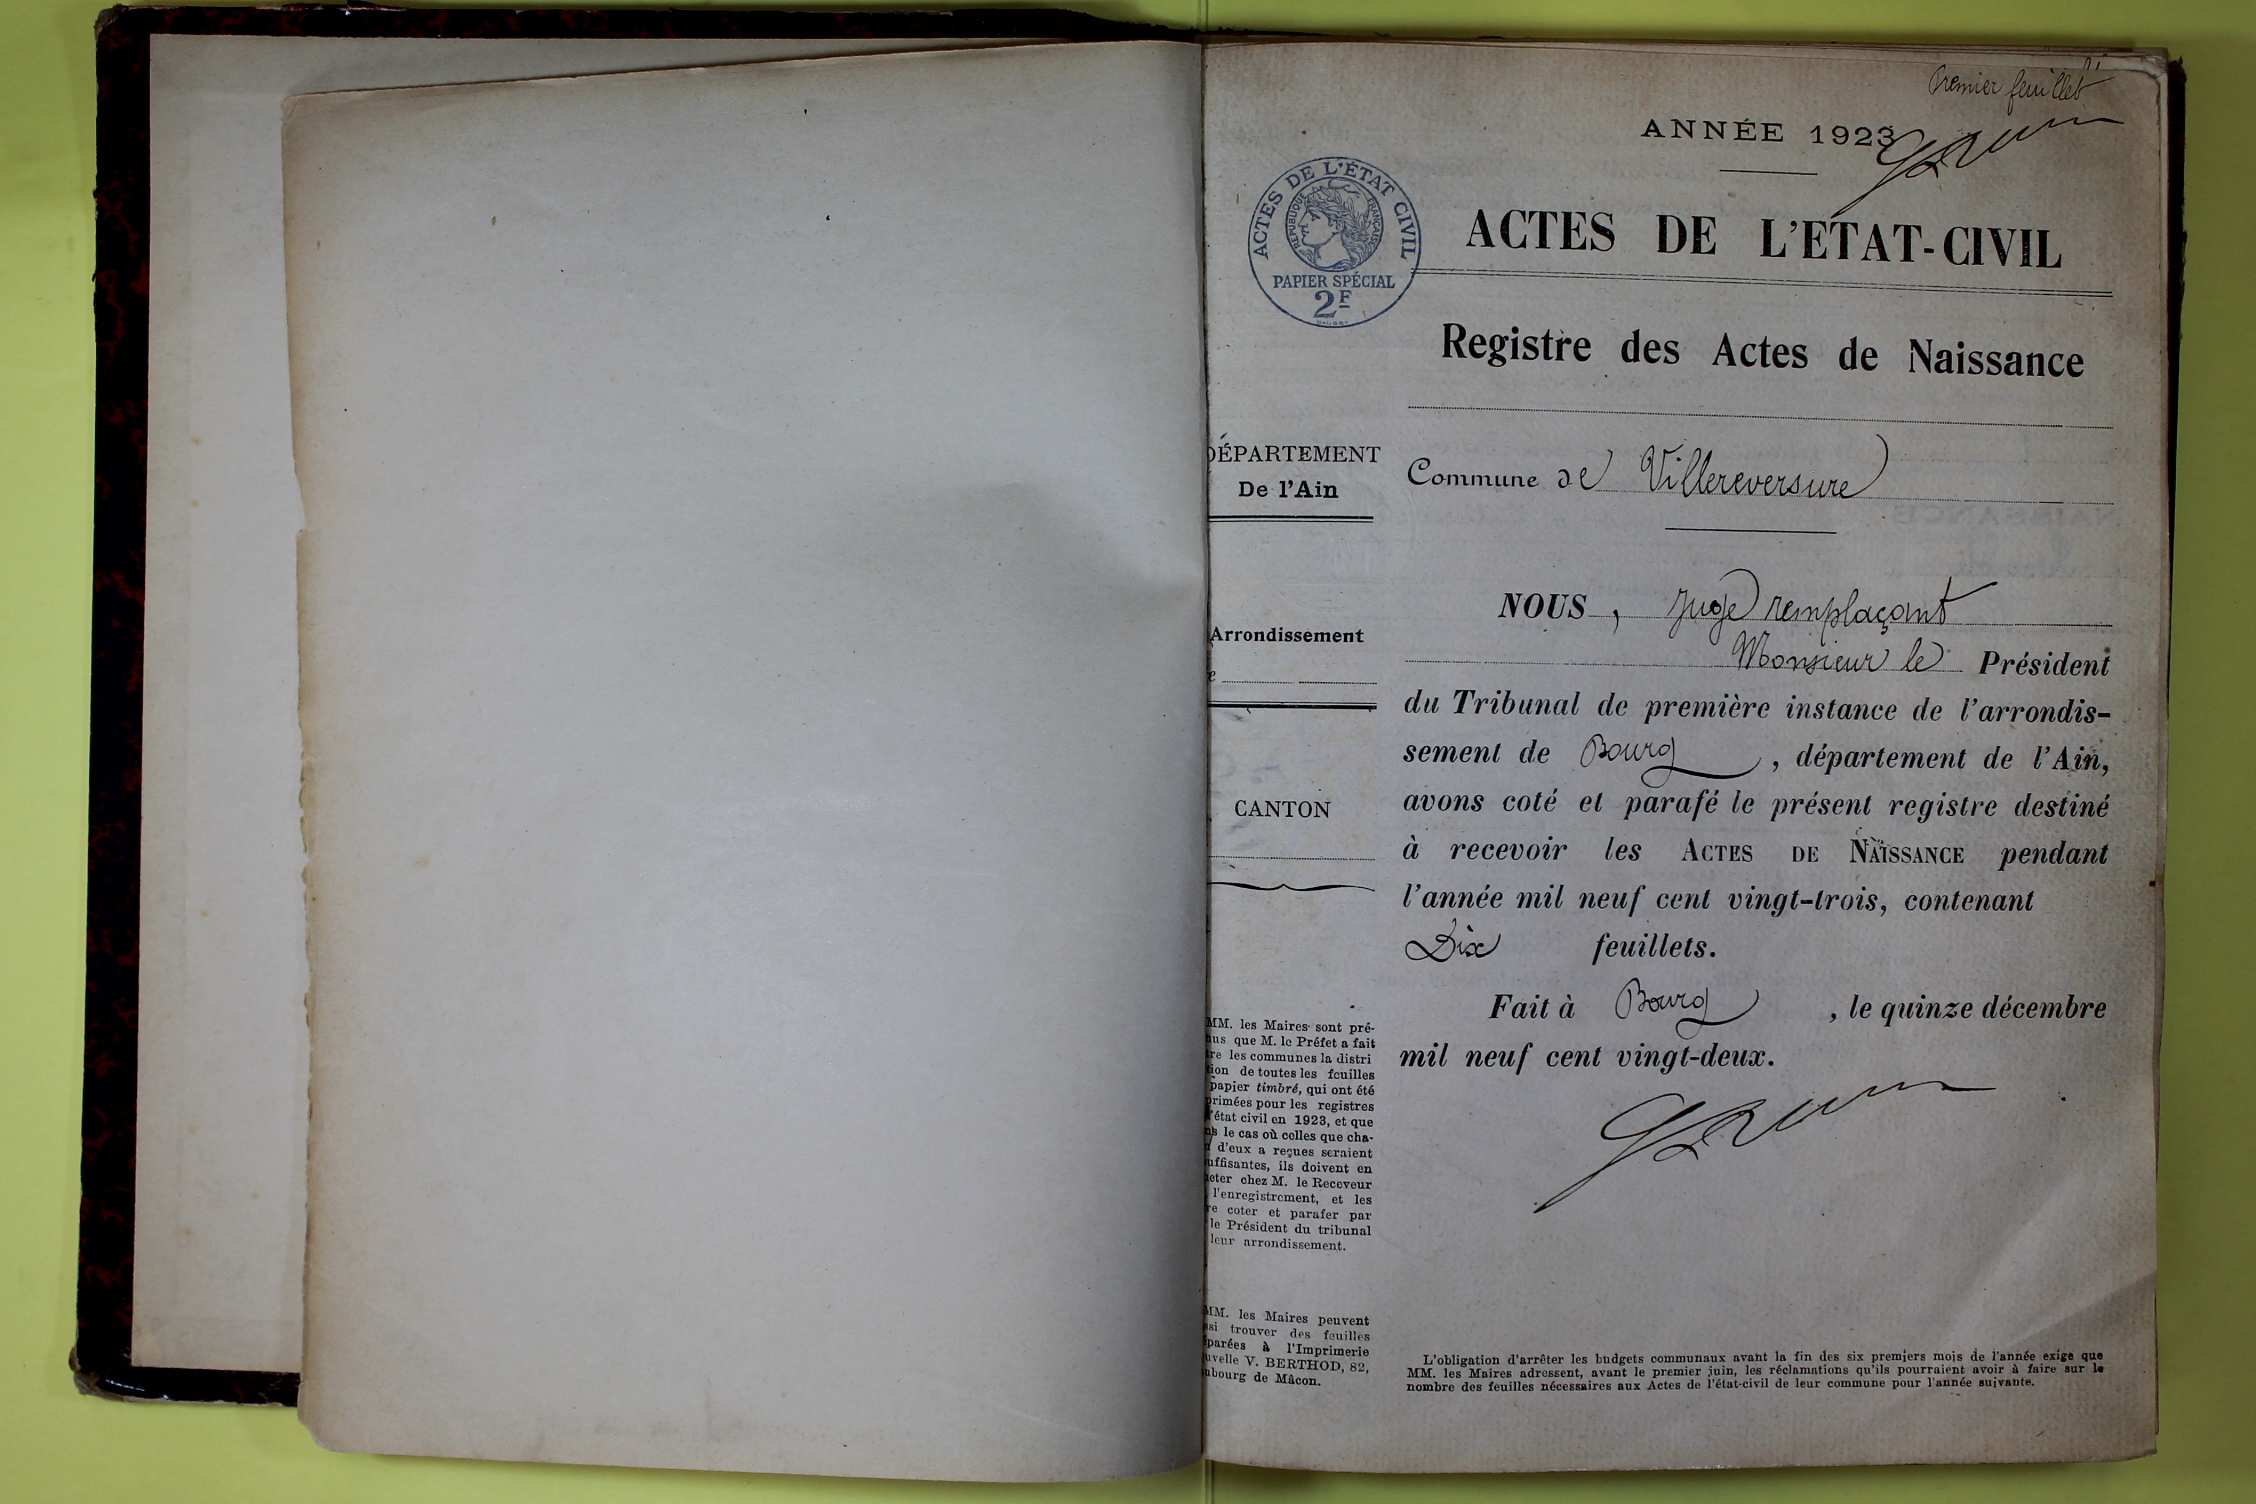 Premier feuillet
ANNÉE 1923
ACTES DE L'ÉTAT CIVIL
RÉPUBLIQUE FRANÇAISE
PAPIER SPÉCIAL
2F
ACTES DE L'ETAT-CIVIL
Registre des Actes de Naissance
DÉPARTEMENT
De l'Ain
Arrondissement
CANTON
MM. les Maires sont pré-
nus que M. le Préfet a fait
tre les communes la distri
tion de toutes les feuilles
papier timbré, qui ont été
primées pour les registres
l'état civil en 1923, et que
ns le cas où celles que cha-
n d'eux a reçues seraient
uffisantes, ils doivent en
heter chez M. le Receveur
l'enregistrement, et les
re coter et parafer par
le Président du tribunal
leur arrondissement.
MM. les Maires peuvent
ssi trouver des feuilles
éparées à l'Imprimerie
uvelle V. BERTHOD, 82,
ubourg de Mâcon.
Commune de Villereversure
NOUS, Juge remplaçant
Monsieur le Président
du Tribunal de première instance de l'arrondis-
sement de Bourg, département de l'Ain,
avons coté et parafé le présent registre destiné
à recevoir les ACTES DE NAISSANCE pendant
l'année mil neuf cent vingt-trois, contenant
Dix feuillets.
Fait à Bourg, le quinze décembre
mil neuf cent vingt-deux.
L'obligation d'arrêter les budgets communaux avant la fin des six premiers mois de l'année exige que
MM. les Maires adressent, avant le premier juin, les réclamations qu'ils pourraient avoir à faire sur le
nombre des feuilles nécessaires aux Actes de l'état-civil de leur commune pour l'année suivante.